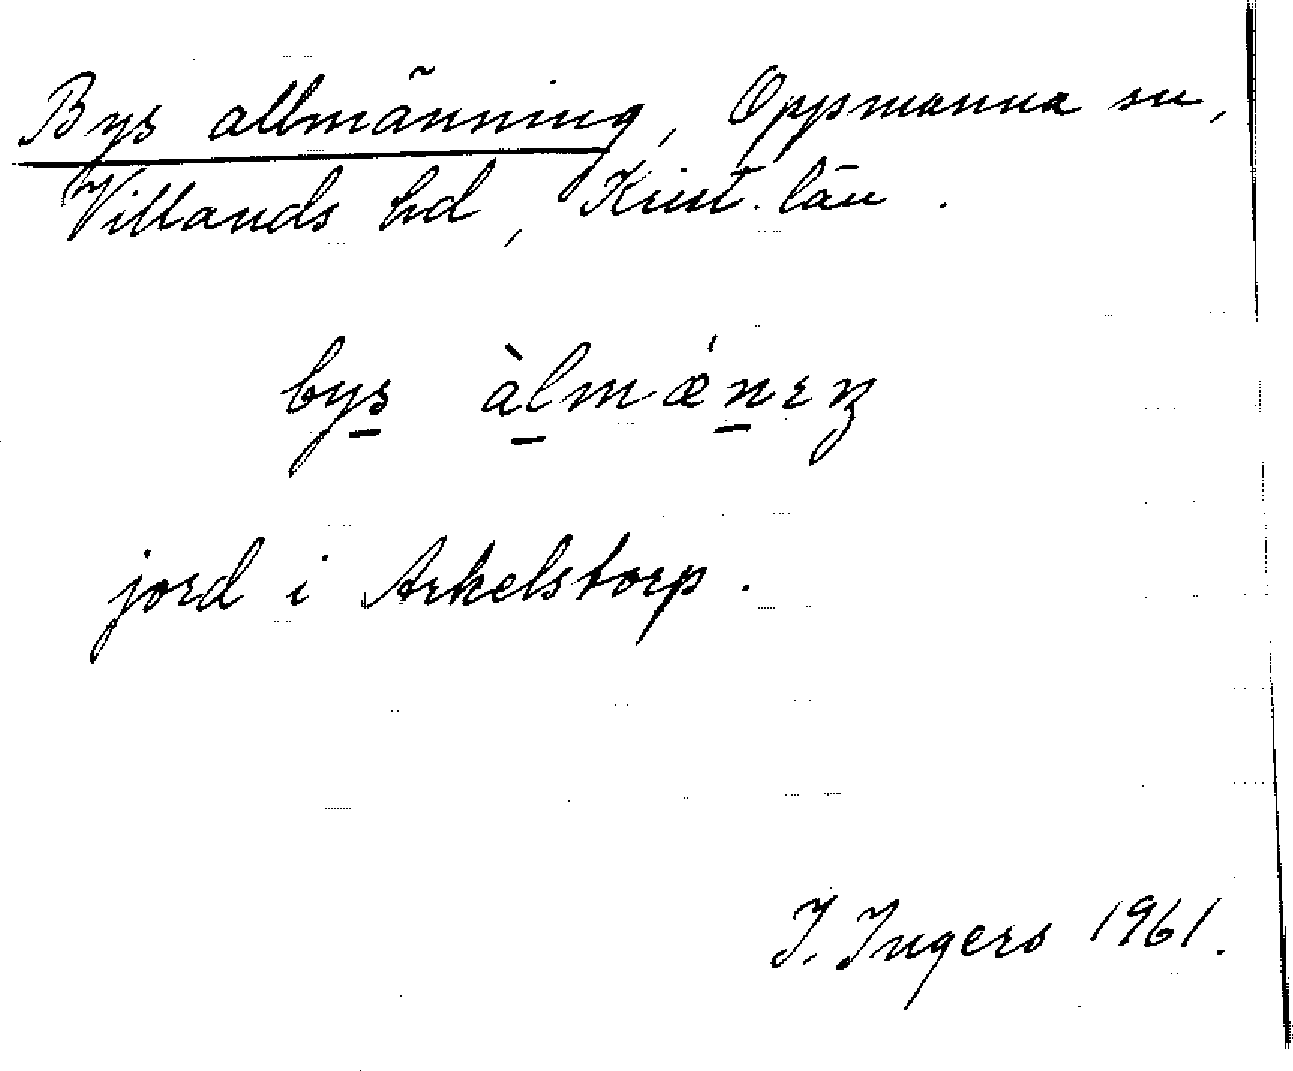 Bys allmänning, Oppmanna sn,
Villands hd, Krist. län.
bys àlmǽnıŋ
jord i Arkelstorp.
I. Ingers 1961.